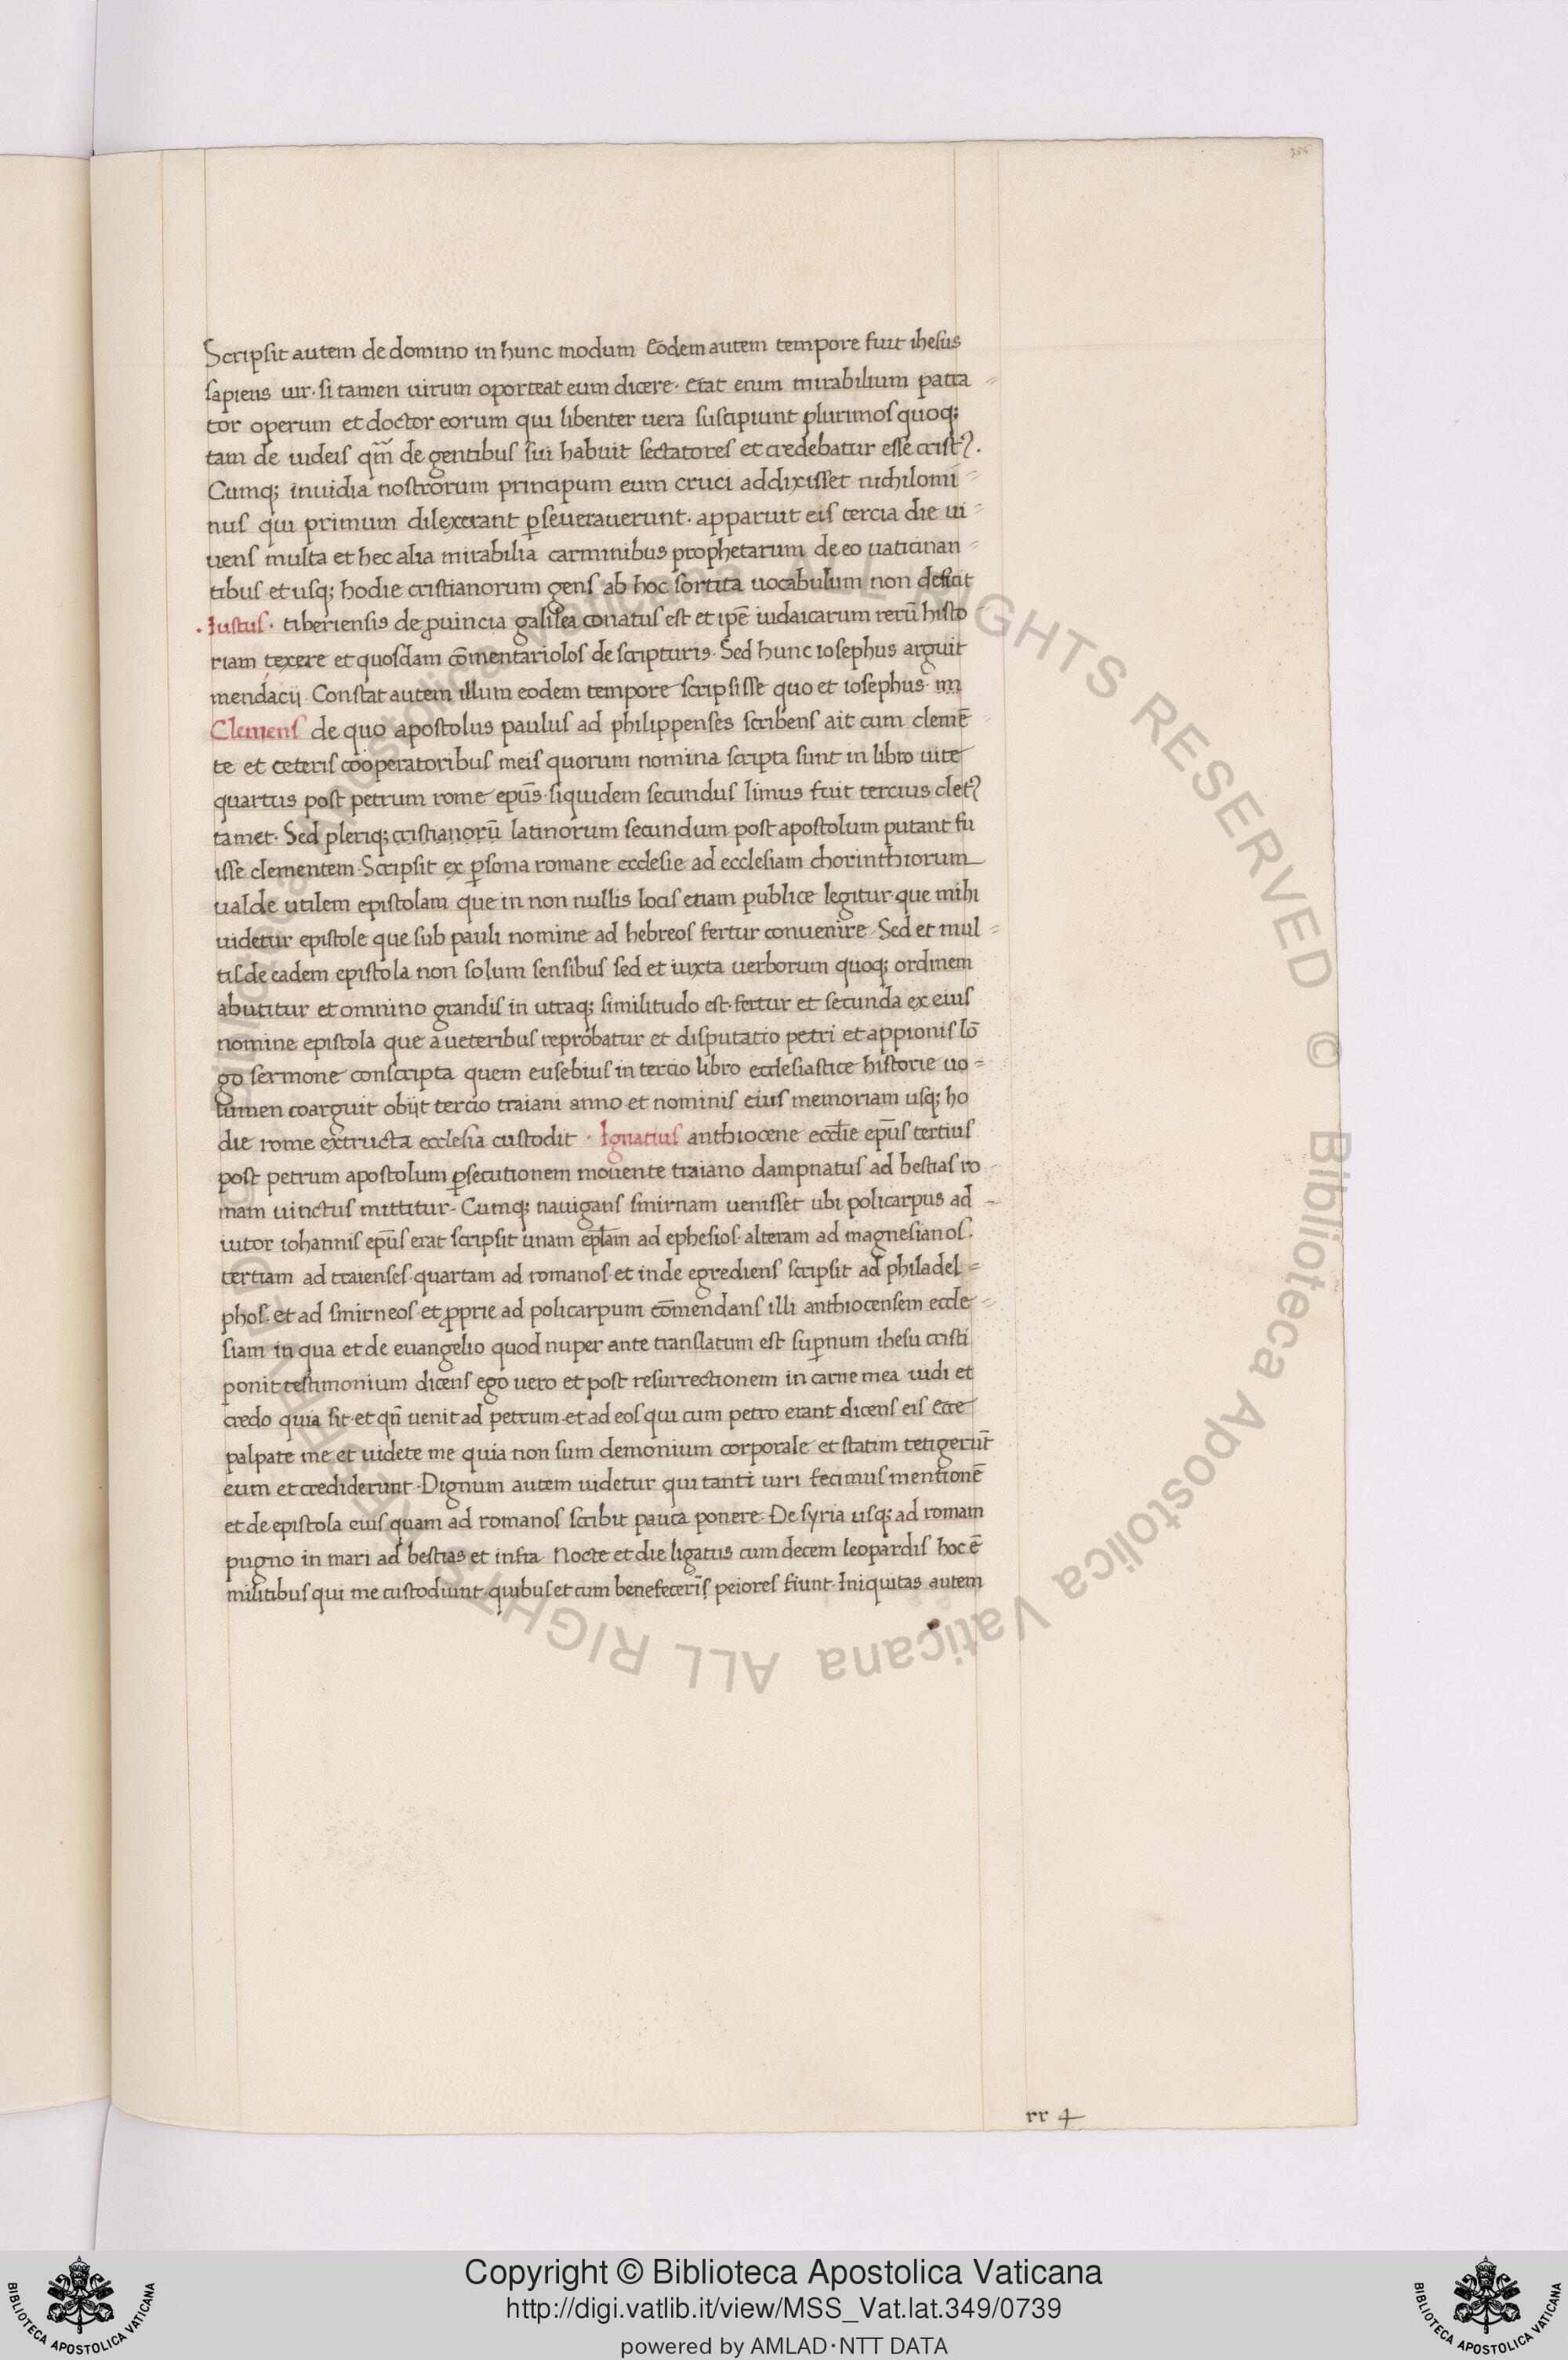 386
Scripsit autem de domino in hunc modum Eodem autem tempore fuit ihesus
sapiens uir · si tamen uirum oporteat eum dicere · Erat enim mirabilium patra =
tor operum et doctor eorum qui libenter uera suscipiunt plurimos quoq;
tam de iudeis qm̄ de gentibus sui habuit sectatores et credebatur esse cristꝰ.
Cumq; inuidia nostrorum principum eum cruci addixisset nichilomi =
nus qui primum dilexerant ꝑseuerauerunt · apparuit eis tercia die ui =
uens multa et hec alia mirabilia carminibus prophetarum de eo uaticinan =
tibus et usq; hodie cristianorum gens ab hoc sortita uocabulum non deficit
· Iustus · tiberiensis de ꝓuincia galilea conatus est et ip̄e iudaicarum rerū histo
riam texere et quosdam cōmentariolos de scripturis · Sed hunc iosephus arguit
mendacij · Constat autem illum eodem tempore scripsisse quo et iosephus
Clemens de quo apostolus paulus ad philippenses scribens ait cum clemē =
te et ceteris cooperatoribus meis quorum nomina scripta sunt in libro uite
quartus post petrum rome ep̄us · siquidem secundus limus fuit tercius cletꝰ
tamet · Sed pleriq; cristianorū latinorum secundum post apostolum putant fu
isse clementem · Scripsit ex ꝑsona romane ecclesie ad ecclesiam chorinthiorum
ualde utilem epistolam que in non nullis locis etiam publice legitur · que mihi
uidetur epistole que sub pauli nomine ad hebreos fertur conuenire · Sed et mul =
tis de eadem epistola non solum sensibus sed et iuxta uerborum quoq; ordinem
abutitur et omnino grandis in utraq; similitudo est · fertur et secunda ex eius
nomine epistola que a ueteribus reprobatur et disputatio petri et appionis lō
go sermone conscripta quem eusebius in tercio libro ecclesiastice historie uo =
lumen coarguit obijt tercio traiani anno et nominis eius memoriam usq; ho
die rome extructa ecclesia custodit · Ignatius anthiocene eccl̄ie ep̄us tertius
post petrum apostolum ꝑsecutionem mouente traiano dampnatus ad bestias ro -
mam uinctus mittitur - Cumq; nauigans smirnam uenisset ubi policarpus ad -
iutor iohannis ep̄us erat scripsit unam ep̄lam ad ephesios · alteram ad magnesianos ·
tertiam ad traienses · quartam ad romanos · et inde egrediens scripsit ad philadel =
phos · et ad smirneos · et ꝓprie ad policarpum cōmendans illi anthiocensem eccle =
siam in qua et de euangelio quod nuper ante translatum est suꝑnum ihesu cristi
ponit testimonium dicens ego uero et post resurrectionem in carne mea uidi et
credo quia sit · et qn̄ uenit ad petrum · et ad eos qui cum petro erant dicens eis Ecce
palpate me et uidete me quia non sum demonium corporale et statim tetigerūt
eum et crediderunt · Dignum autem uidetur qui tanti uiri fecimus mentionē
et de epistola eius quam ad romanos scribit pauca ponere · De syria usq; ad romam
pugno in mari ad bestias et infra · Nocte et die ligatus cum decem leopardis hoc ē
militibus qui me custodiunt · quibus et cum benefeceris peiores fiunt · Iniquitas autem
rr 4
© Biblioteca Apostolica Vaticana ALL RIGHTS RESERVED
Copyright © Biblioteca Apostolica Vaticana
http://digi.vatlib.it/view/MSS_Vat.lat.349/0739
powered by AMLAD·NTT DATA
BIBLIOTECA APOSTOLICA VATICANA
BIBLIOTECA APOSTOLICA VATICANA